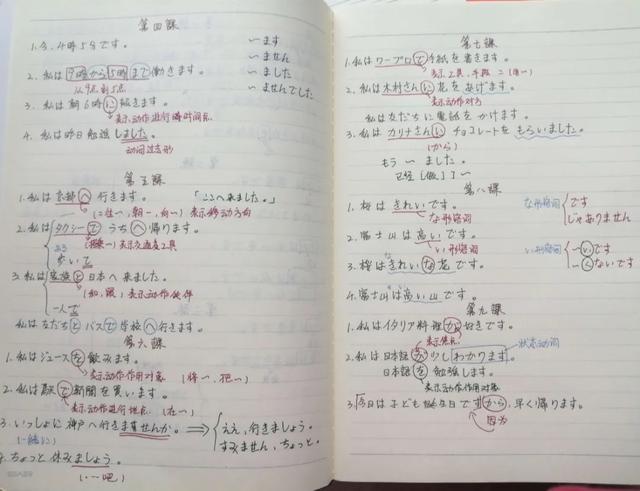 第四课
1.今、4時5分です。
～ます
～ません
～ました
～ませんでした
2.私は9時から5時まで働きます。
从9点到5点
3.私は朝6時に起きます。
表示动作进行瞬时间点
4.私は昨日勉強しました。
动词过去形
第五课
1.私は京都へ行きます。 「ここへ来ました。」
(去～,朝～,向～)表示移动方向
2.私はタクシーでうちへ帰ります。
(乘～)表示交通工具
歩いて
3.私は家族と日本へ来ました。
(和,跟)表示动作伙伴
一人で
私は友だちとバスで学校へ行きます。
第六课
1.私はジュースを飲みます。
表示动作作用对象 (将～,把～)
2.私は駅で新聞を買います。
表示动作进行地点 (在～)
3.いっしょに神戸へ行きませんか。
(一起)
ええ,行きましょう。
すみません,ちょっと。
4.ちょっと休みましょう。
(～吧)
第七课
1.私はワープロで手紙を書きます。
表示工具,手段 (用～)
2.私は木村さんに花をあげます。
表示动作对方
私は友だちに電話をかけます。
3.私はカリナさんにチョコレートをもらいました。
(から)
もう～ました。
已经[做]了～
第八课
1.桜はきれいです。
な形容词
な形容词 です
じゃありません
2.富士山は高いです。
い形容词
い形容词 ～いです
～くないです
3.桜はきれいな花です。
4.富士山は高い山です。
第九课
1.私はイタリア料理が好きです。
2.私は日本語が少しわかります。
状态动词
日本語を勉強します。
表示动作作用对象
3.今日は子ども誕生日ですから、早く帰ります。
因为